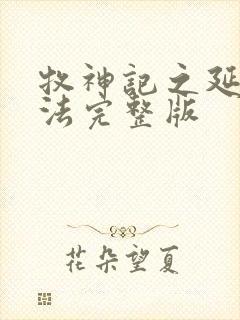 牧神记之延
法完整版
花朵望夏